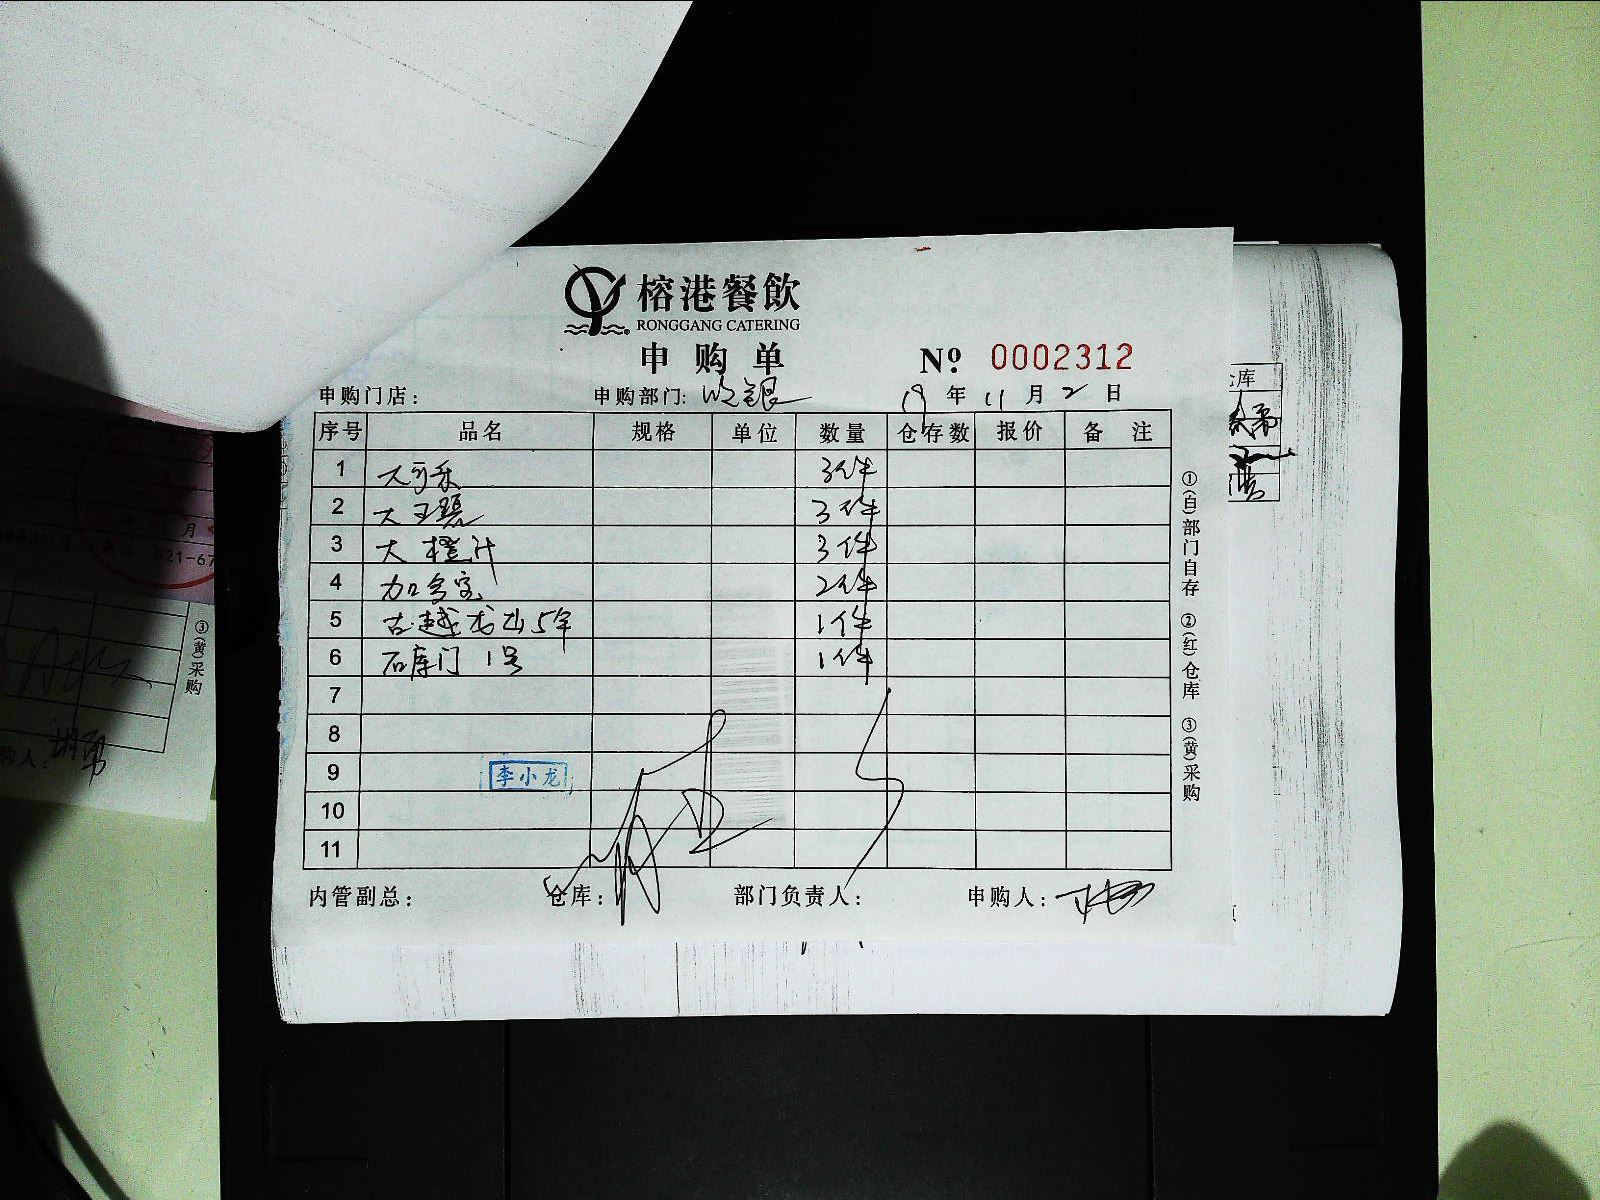 榕港餐飲
RONGGANG CATERING
申购单
Nº 0002312
申购门店:
申购部门: 收银 19年 11月 2日
序号 品名 规格 单位 数量 仓存数 报价 备注
1 大可乐 3件
2 大王 3件
3 大橙汁 3件
4 加多宝 2件
5 古越龙山5年 1件
6 石库门 1号 1件
7
8
9 李小龙
10
11
内管副总: 仓库: 部门负责人: 申购人:
①(白)部门自存 ②(红)仓库 ③(黄)采购
仓库
月
021-67
③(黄)采购
购人: